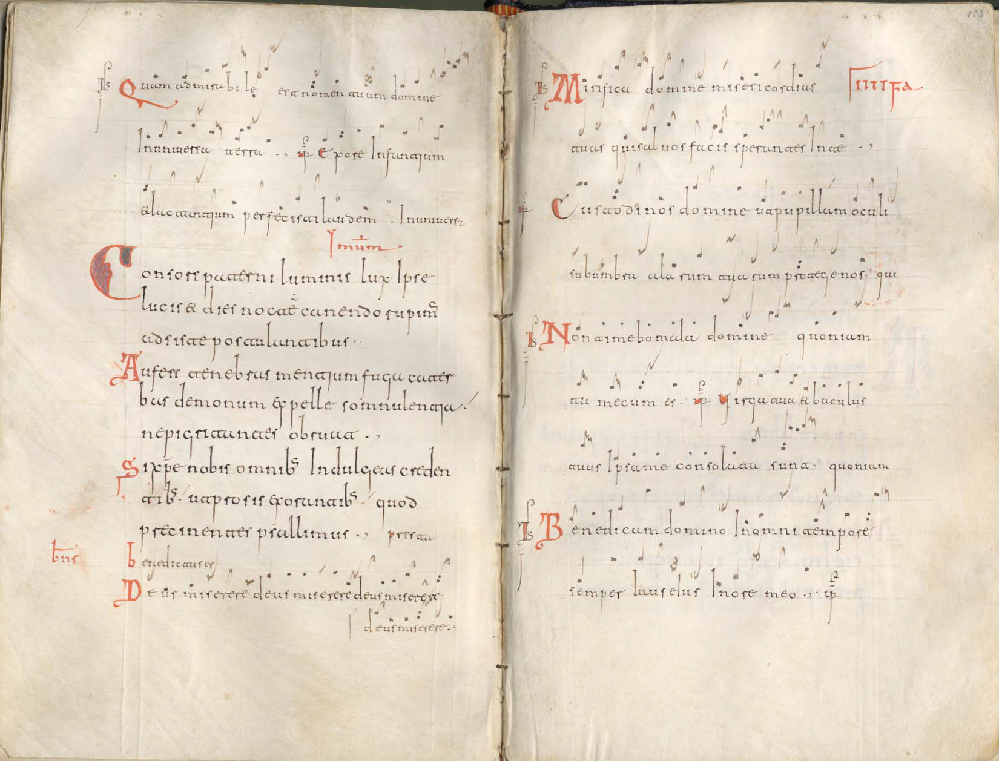 Quam admirabile est nomen tuum domine
In universa terra .,  Ex ore Infantium
& lactantium perfecisti laudem . In universa
Consors paterni luminis lux Ipse
lucis & dies noctē canendo rupim᷒
adsiste postulantibus ..
Aufer tenebras mentium fuga cater
bas demonum expelle somnulentia
ne pigritantes obruat .,
Sic xp̄e nobis omnib; Indulgeas creden
tib; ut prosis exorantib; quod
precinentes psallimus .,
benedicatus
Deus miserere deus miserere deus miserere
deus miserere ..
153
Mirifica domine misericordias
tuas qui saluos facis sperantes In te .,
Custodi nos domine ut pupillam oculi
sub umbra alarum tuarum protege nos qui
Non timebo mala domine quoniam
tu mecum es . Uirga tua & baculus
tuus Ipsa me consolata sunt . quoniam
Benedicam domino In omni tempore
semper laus eius In ore meo .,